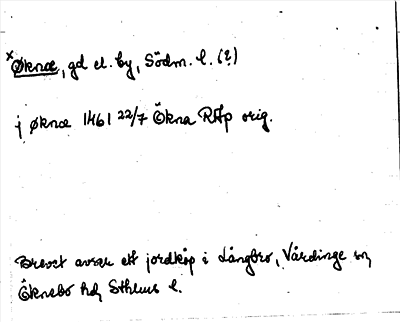 ˣØknæ, gd el. by, Södm. l. (?)
j øknæ 1461 22/7 Ökna RAp orig.
Brevet avser ett jordköp i Långbro, Vårdinge sn,
Öknebo hd, Sthlms l.